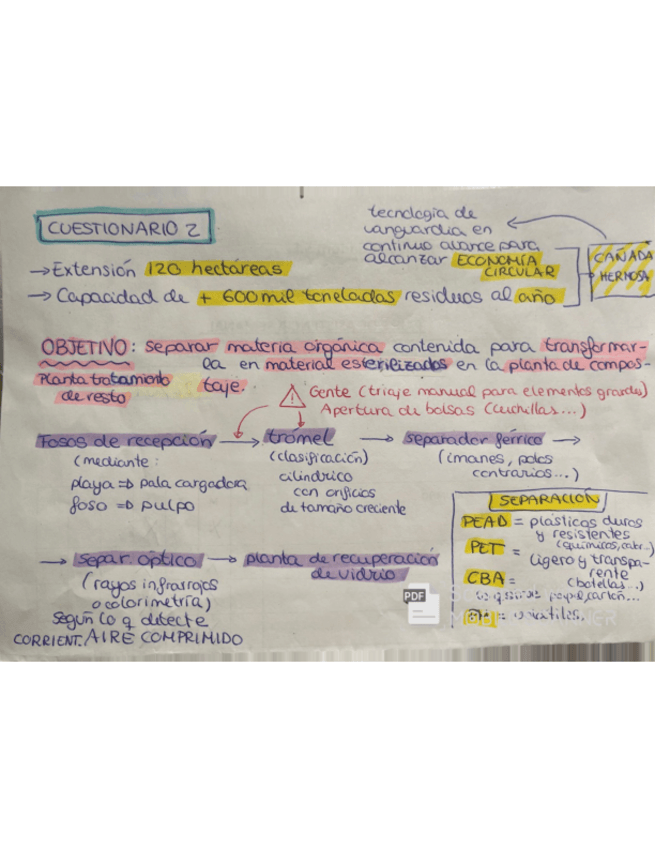 CUESTIONARIO 2
tecnología de
vanguardia en
continuo avance para
alcanzar ECONOMÍA
CIRCULAR
CAÑADA
HERMOSA
→ Extensión 120 hectáreas
→ Capacidad de + 600 mil toneladas residuos al año
OBJETIVO: separar materia orgánica contenida para transformar-
la en material esterilizados en la planta de compos-
taje.
Planta tratamiento
de resto
Gente (triaje manual para elementos grandes)
Apertura de bolsas (cuchillas...)
Fosos de recepción → trómel → separador férrico →
(mediante:
playa ⇒ pala cargadora
foso ⇒ pulpo
(clasificación)
cilíndrico
con orificios
de tamaño creciente
(imanes, polos
contrarios...)
→ separ. óptico → planta de recuperación
de vidrio
(rayos infrarrojos
o colorimetría)
según lo q detecte
CORRIENT. AIRE COMPRIMIDO
SEPARACIÓN
PEAD = plásticos duros
y resistentes
(químicos, cabr..)
PET = ligero y transpa-
rente
(botellas...)
CBA =
papel, cartón...
PDF